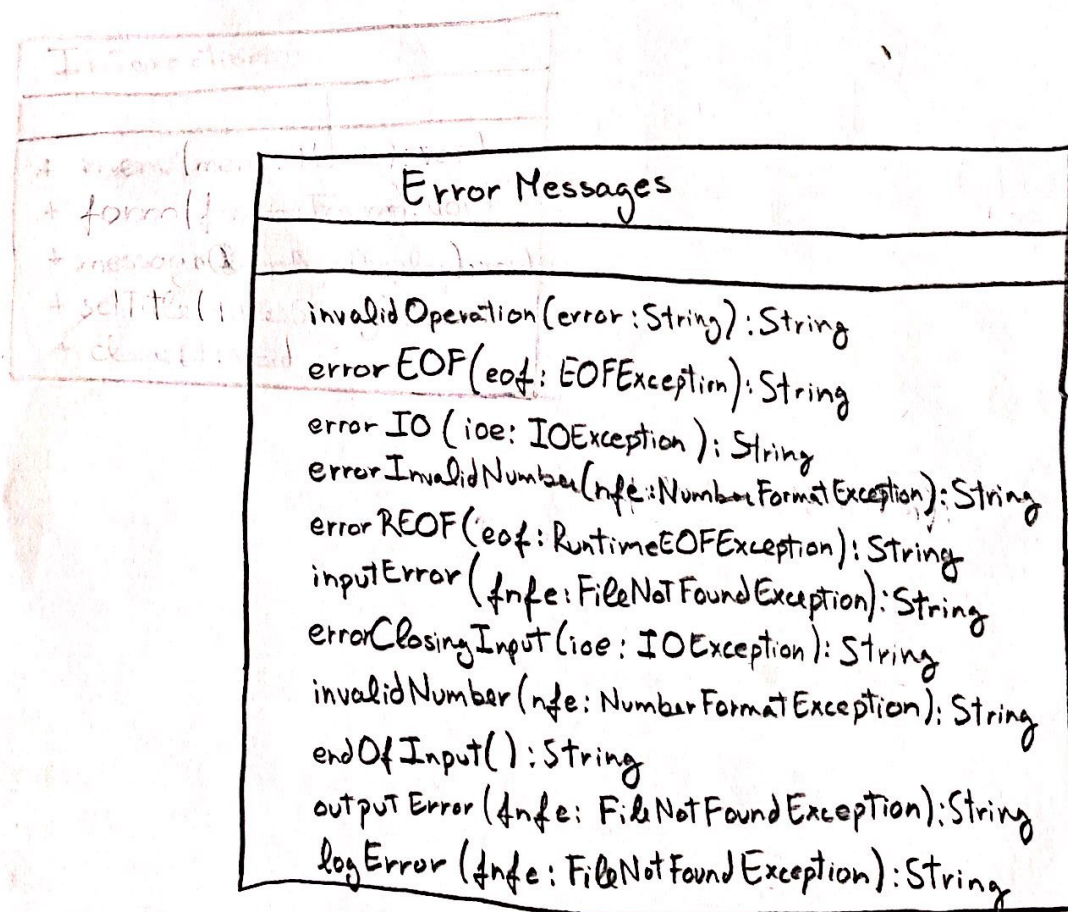 Error Messages
invalidOperation(error:String):String
errorEOF(eof: EOFException):String
errorIO(ioe: IOException): String
errorInvalidNumber(nfe:NumberFormatException):String
errorREOF(eof:RuntimeEOFException): String
inputError(fnfe:FileNotFoundException):String
errorClosingInput(ioe: IOException): String
invalidNumber(nfe: NumberFormatException): String
endOfInput():String
outputError(fnfe: FileNotFoundException):String
logError(fnfe: FileNotFoundException): String